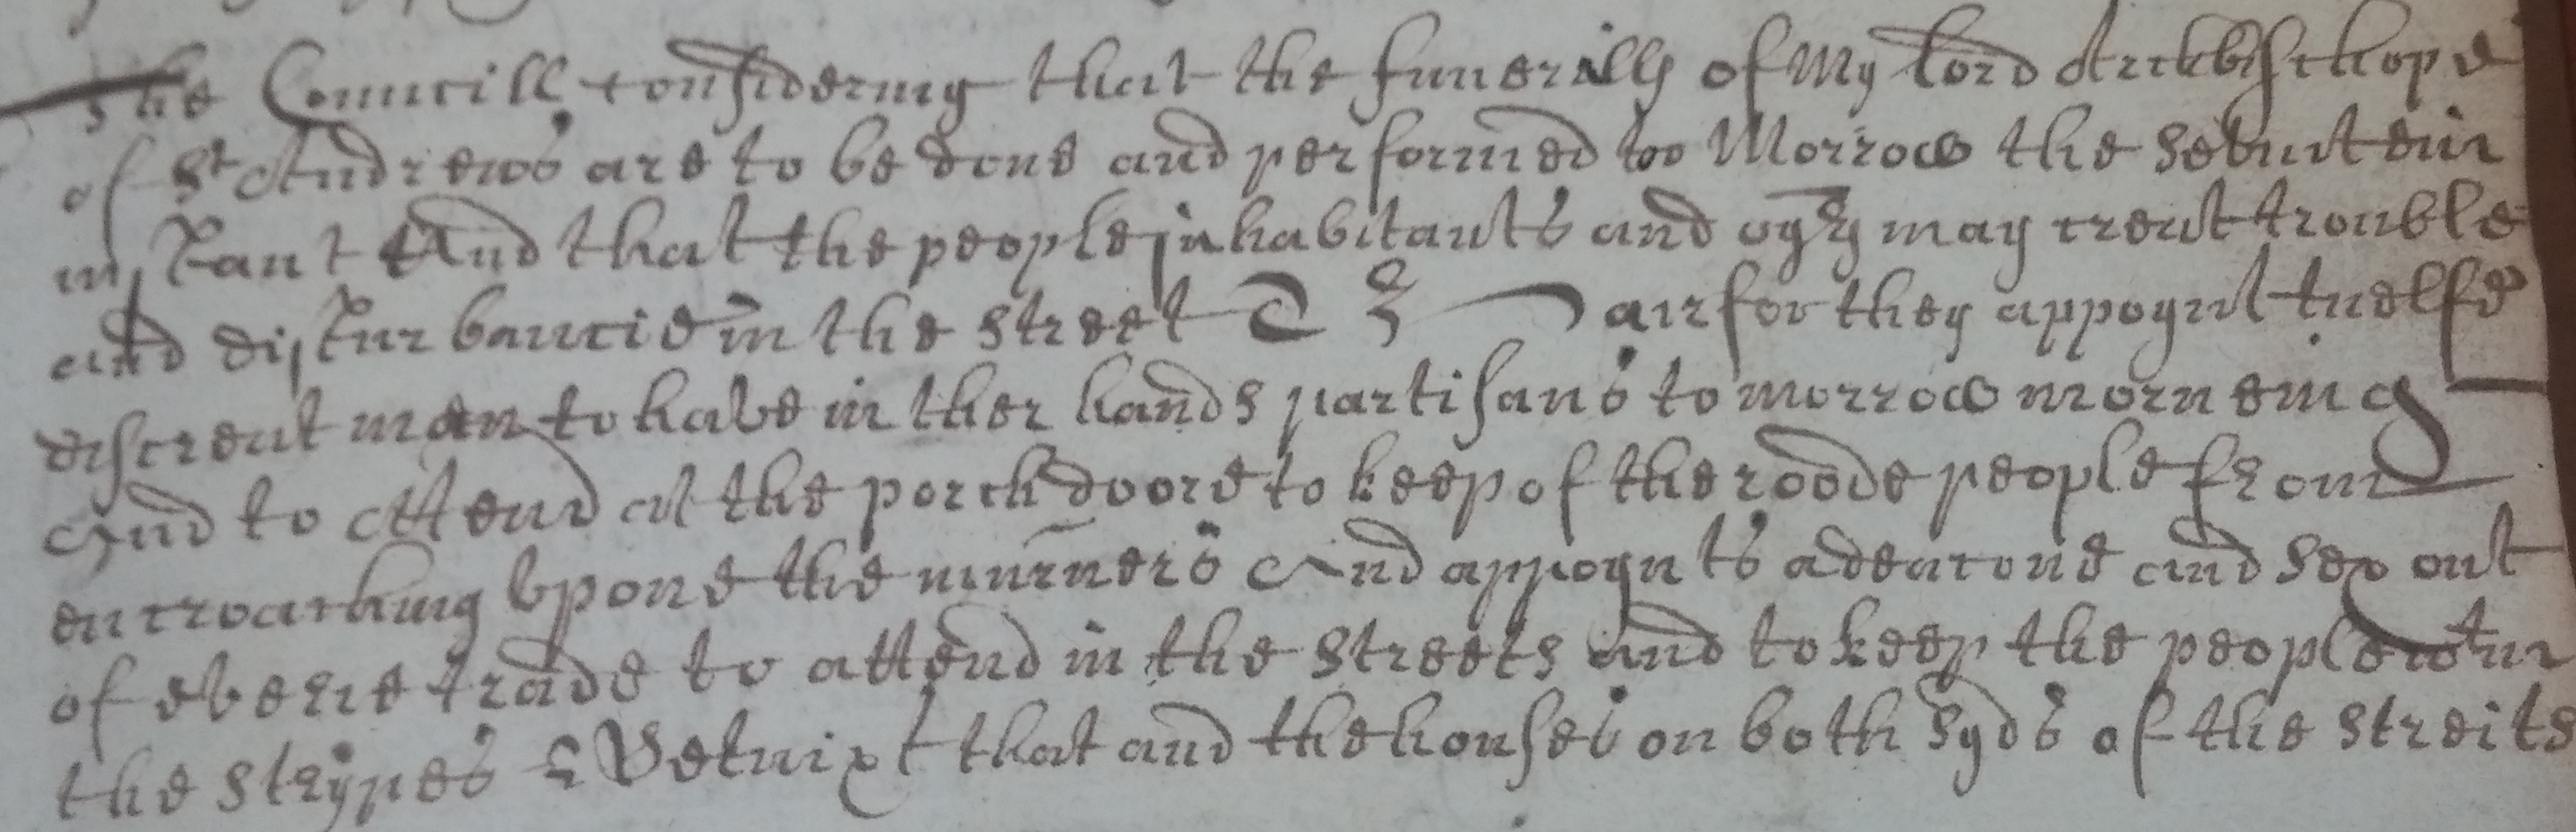 The Councill considering that the funerills of My Lord Archbischope
of St Andrews are to be done and performed too Morrow the sevintein
instant And that the people inhabitants and oyrs may creat trouble
and disturbancie in the street &c airfor they appoynt tuelfe
discreit men to have in ther hands partisans to morrow morneing
And to attend at the porch doore to keep of the roode people from
encroaching vpone the murners And appoynts a deacone and sex out
of everie trade to attend in the streets and to keep the people
the strypes & Betuixt that and the houses on both syds of the streits